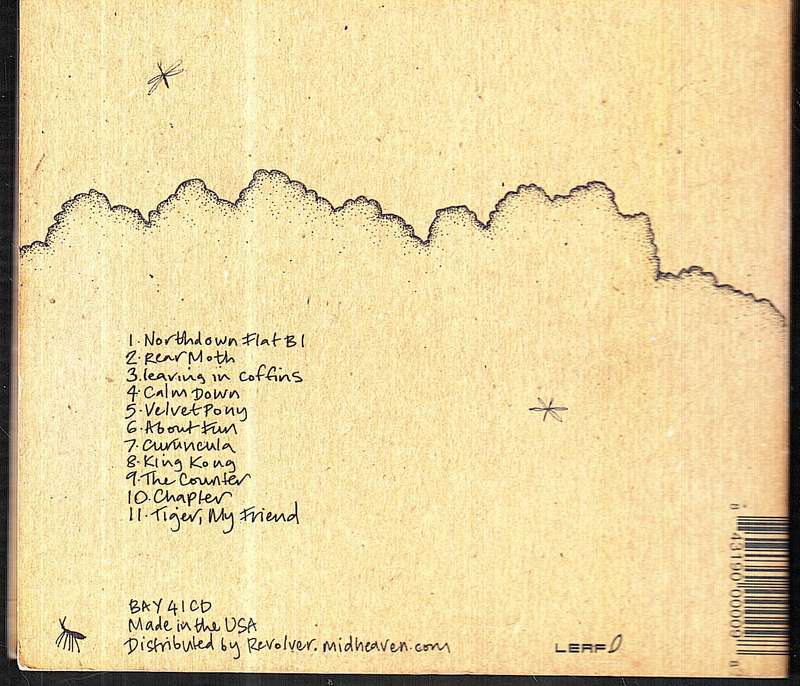 1. Northdown Flat B1
2. Rear Moth
3. leaving in coffins
4. Calm Down
5. Velvet Pony
6. About Fun
7. Curuncula
8. King Kong
9. The Counter
10. Chapter
11. Tiger, My Friend
BAY 41CD
Made in the USA
Distributed by Revolver. midheaven.com
LEAF
8 43190 00009 8